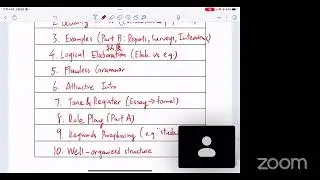 3. Examples (Part B: Reports, Surveys, Interviews)
拓展
4. Logical Elaboration (Elab. vs e.g.)
5. Flawless Grammar
6. Attractive Intro
7. Tone & Register (Essay → formal)
8. Role Play (Part A)
9. Keywords Paraphrasing (e.g. "stude
10. Well-organized structure
zoom